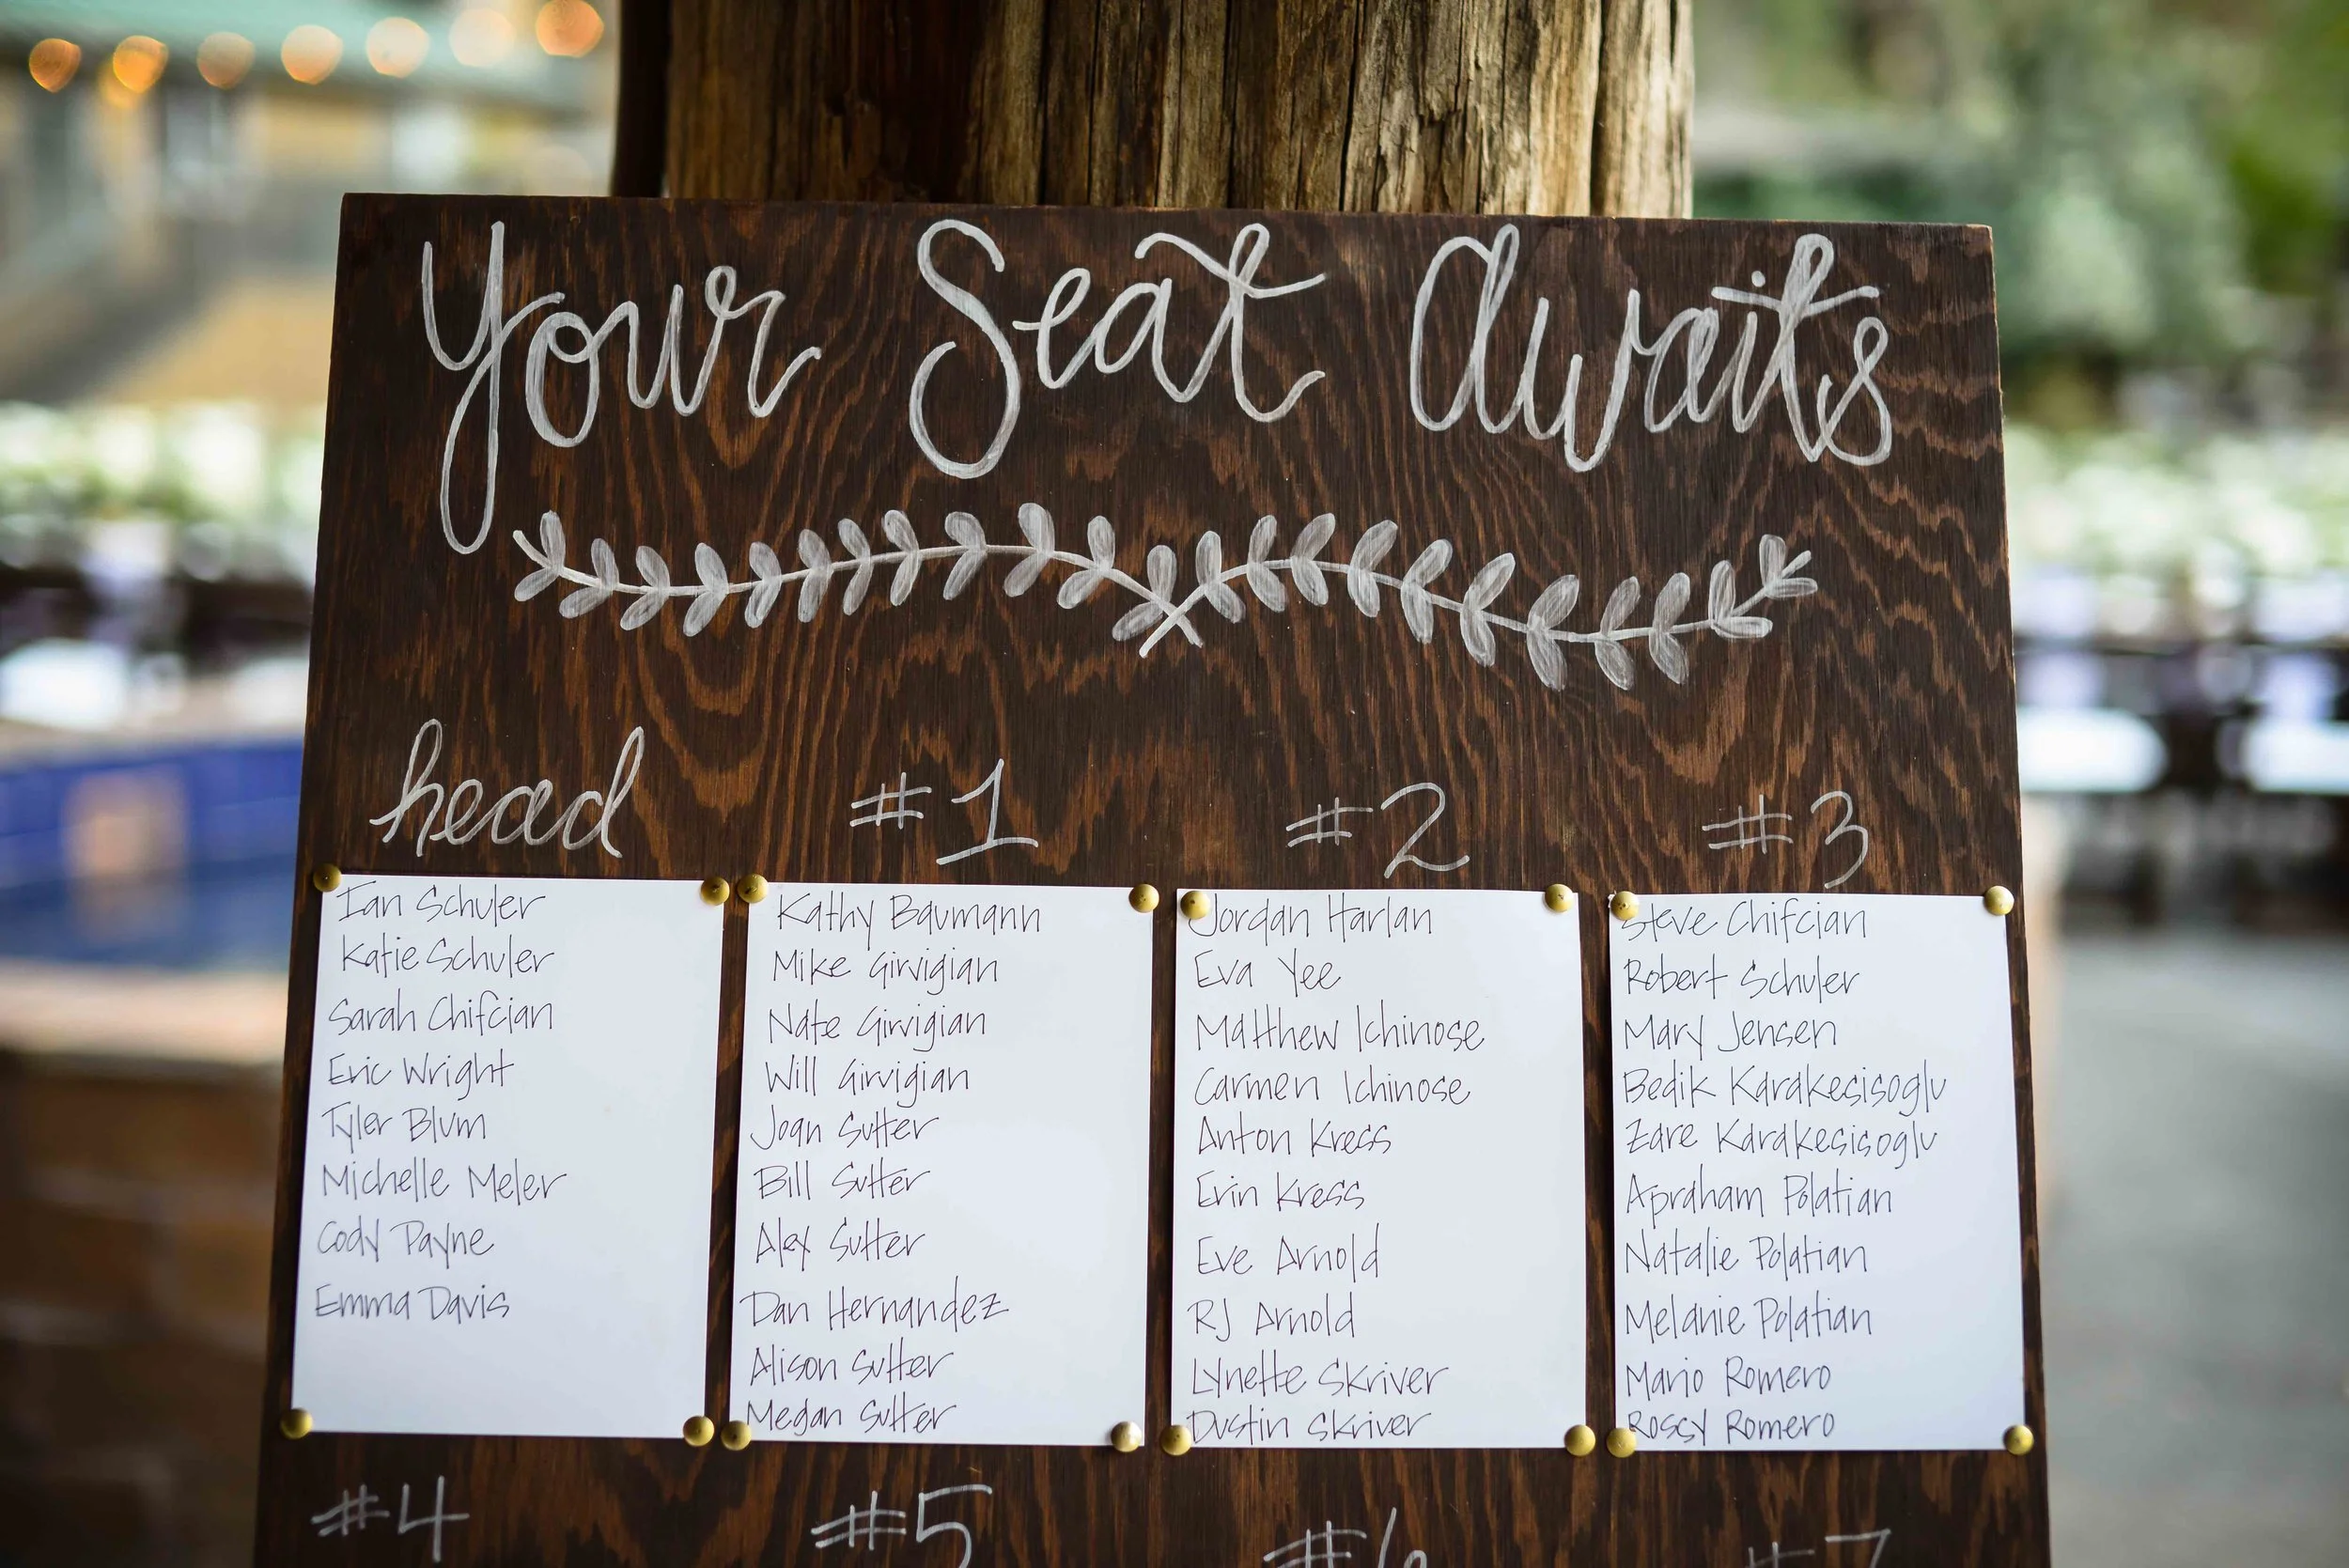 Your Seat Awaits
head
Ian Schuler
Katie Schuler
Sarah Chifcian
Eric Wright
Tyler Blum
Michelle Meler
Cody Payne
Emma Davis
#1
Kathy Baumann
Mike Girvigian
Nate Girvigian
Will Girvigian
Joan Sutter
Bill Sutter
Alex Sutter
Dan Hernandez
Alison Sutter
Megan Sutter
#2
Jordan Harlan
Eva Yee
Matthew Ichinose
Carmen Ichinose
Anton Kress
Erin Kress
Eve Arnold
RJ Arnold
Lynette Skriver
Dustin Skriver
#3
Steve Chifcian
Robert Schuler
Mary Jensen
Bedik Karakesisoglu
Zare Karakesisoglu
Apraham Polatian
Natalie Polatian
Melanie Polatian
Mario Romero
Rossy Romero
#4
#5
#6
#7